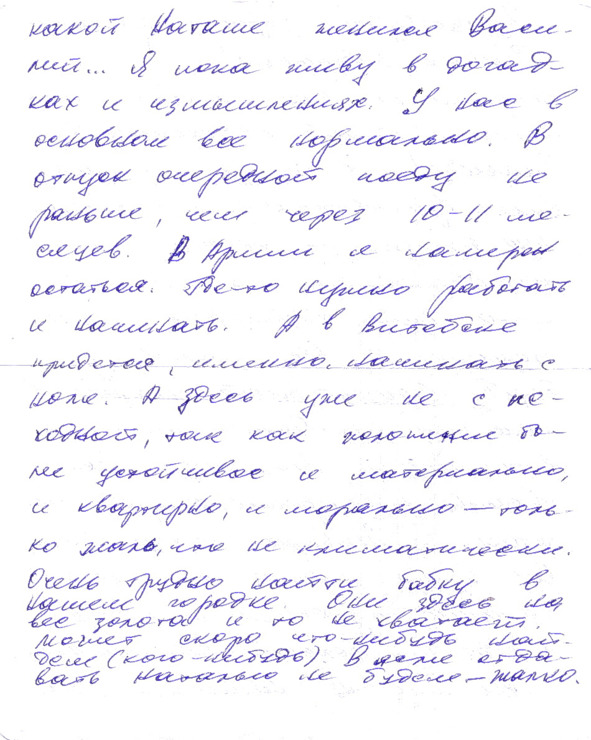 какой Наташе женился Васи-
лий... Я пока живу в догад-
ках и измышлениях. У нас в
основном все нормально. В
отпуск очередной поеду не
раньше, чем через 10-11 ме-
сяцев. В Армии я намерен
остаться. Где-то нужно работать
и начинать. А в Витебске
придется, именно, начинать с
ноля. А здесь уже не с ис-
ходной, так как положение бо-
лее устойчивое и материально,
и квартирно, и морально — толь-
ко жаль, что не климатически.
Очень трудно найти бабку в
нашем городке. Они здесь на
вес золота и то не хватает.
Может скоро что-нибудь най-
дем (кого-нибудь). В ясли отда-
вать Наталью не будем — жалко.